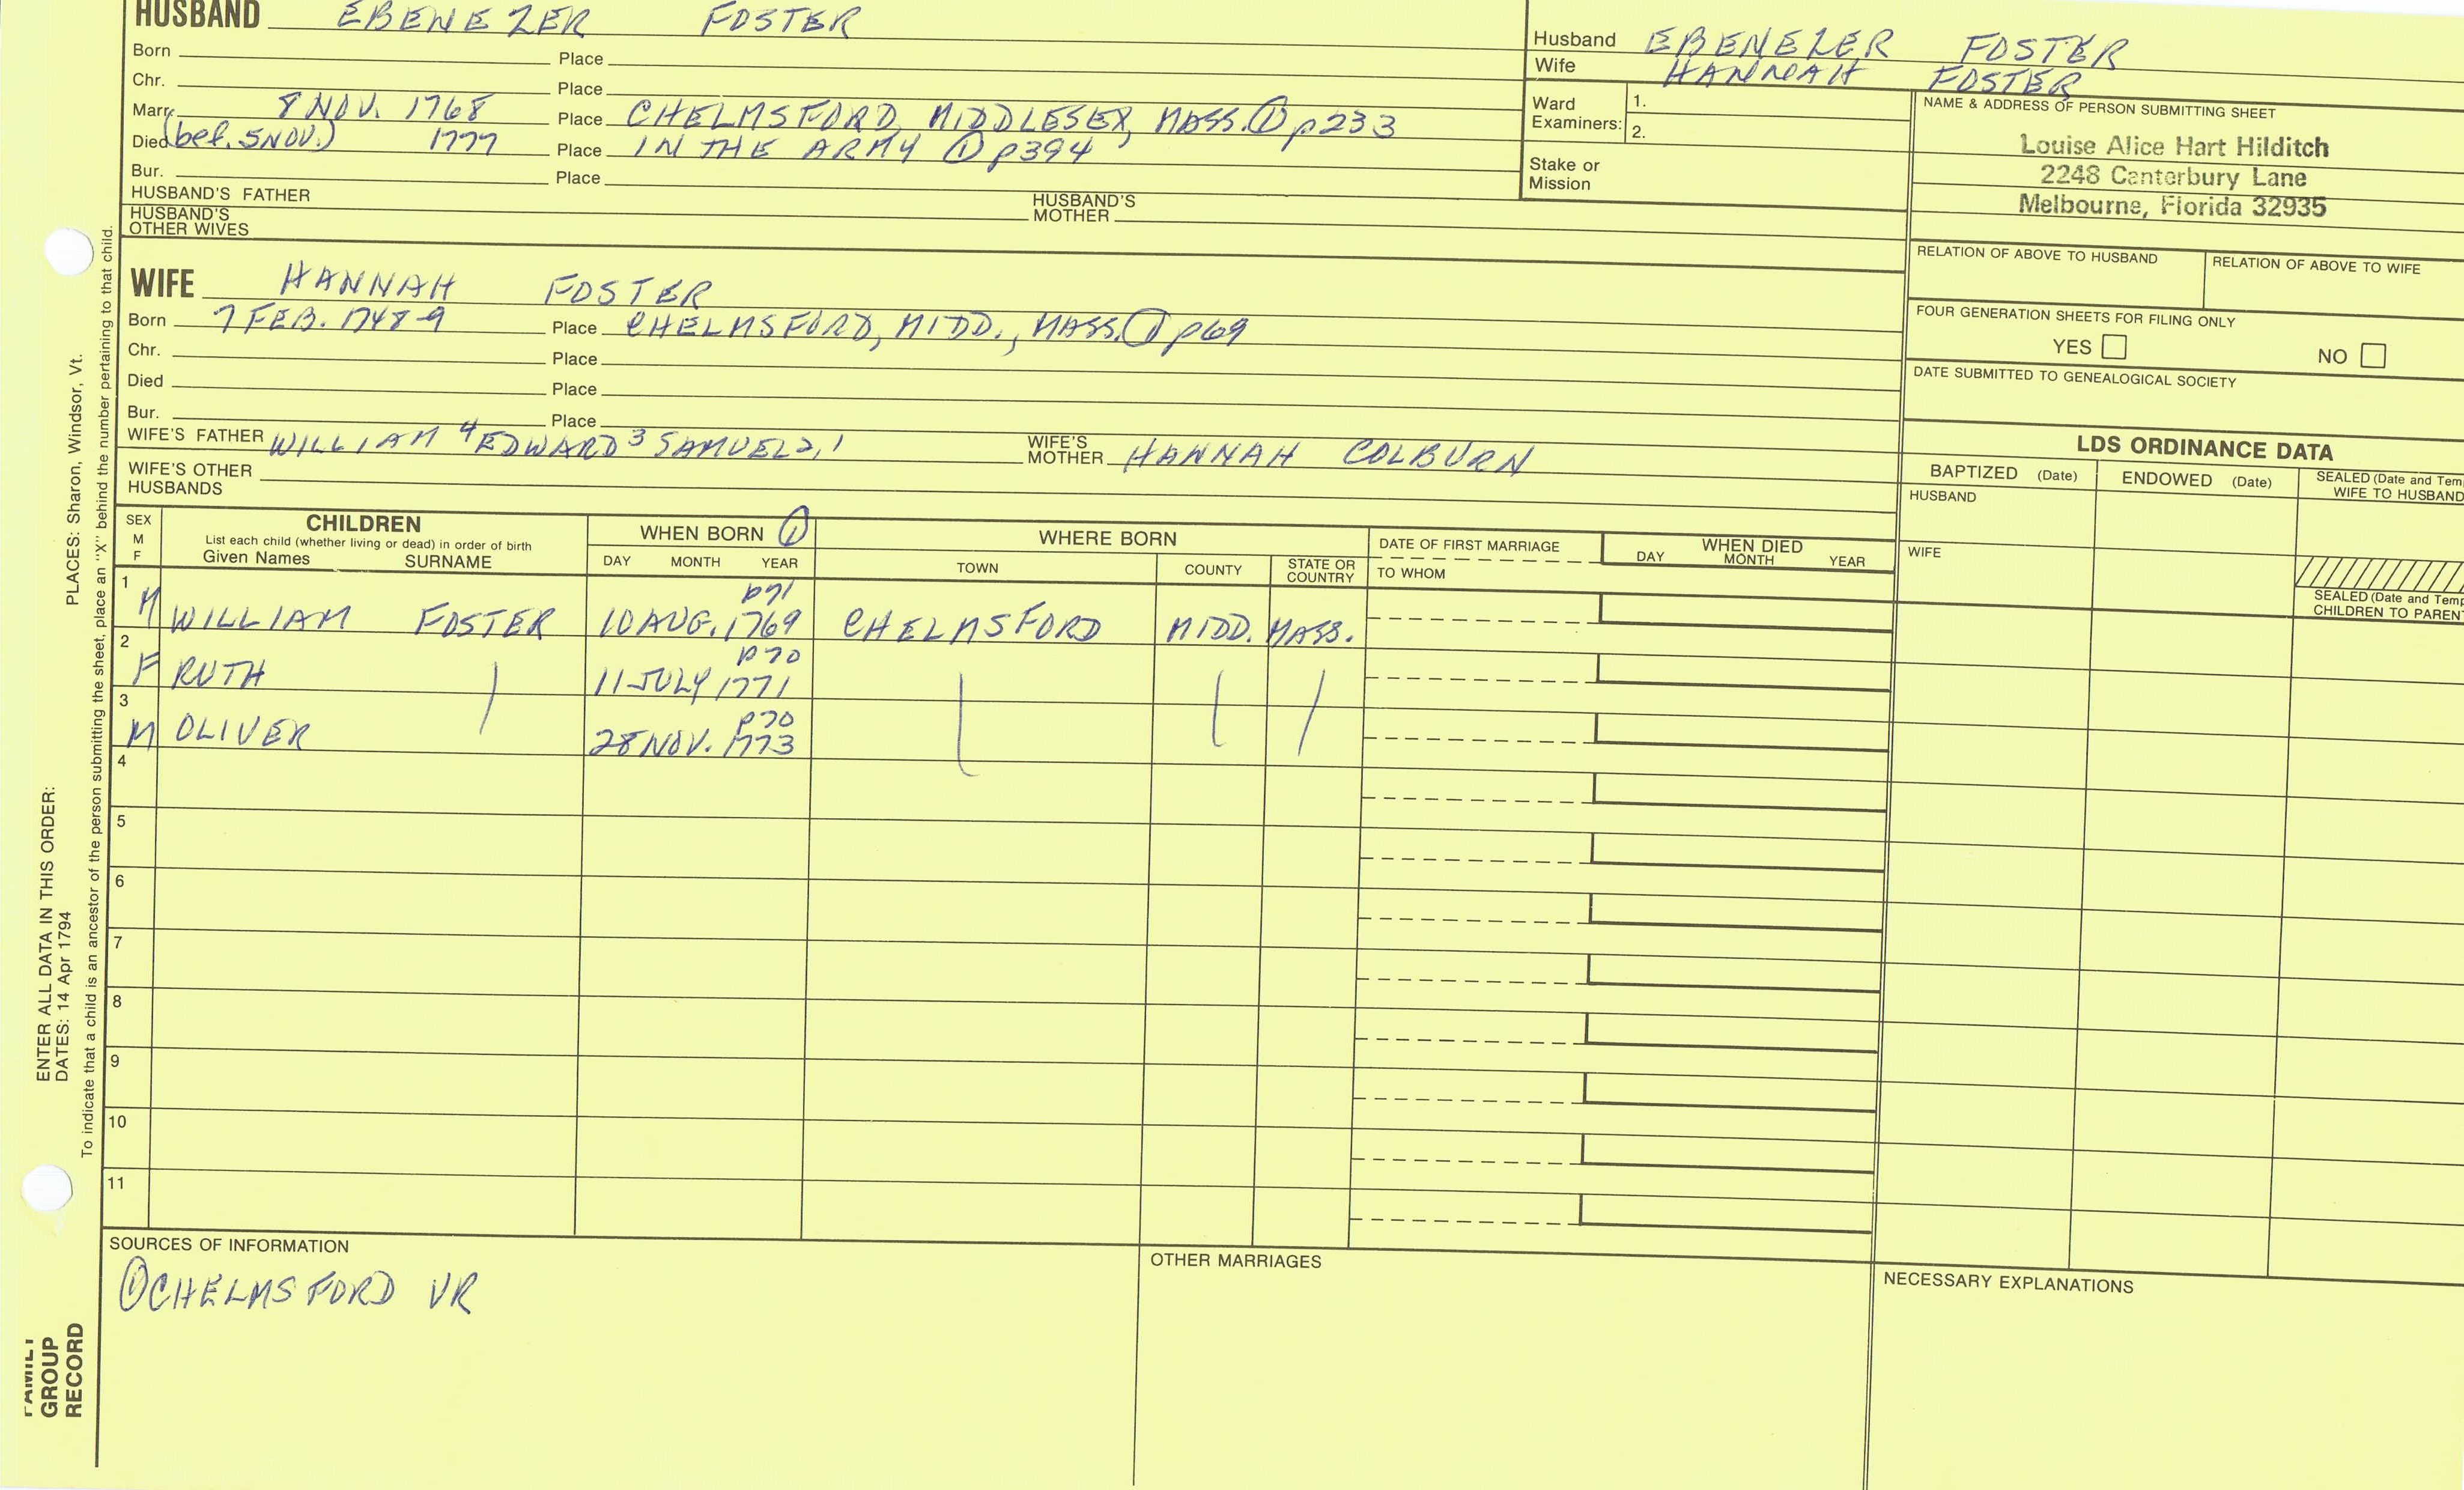 HUSBAND EBENEZER FOSTER
Born Place
Chr. Place
Marr. 8 NOV. 1768 Place CHELMSFORD, MIDDLESEX, MASS. ① p233
Died (bef. 5 NOV.) 1777 Place IN THE ARMY ① p394
Bur. Place
HUSBAND'S FATHER HUSBAND'S MOTHER
HUSBAND'S OTHER WIVES
Husband EBENEZER FOSTER
Wife HANNAH FOSTER
Ward Examiners: 1.
2.
Stake or Mission
NAME & ADDRESS OF PERSON SUBMITTING SHEET
Louise Alice Hart Hilditch
2248 Canterbury Lane
Melbourne, Florida 32935
RELATION OF ABOVE TO HUSBAND RELATION OF ABOVE TO WIFE
FOUR GENERATION SHEETS FOR FILING ONLY
YES NO
DATE SUBMITTED TO GENEALOGICAL SOCIETY
WIFE HANNAH FOSTER
Born 7 FEB. 1748-9 Place CHELMSFORD, MIDD., MASS. ① p69
Chr. Place
Died Place
Bur. Place
WIFE'S FATHER WILLIAM 4 EDWARD 3 SAMUEL 2,1 WIFE'S MOTHER HANNAH COLBURN
WIFE'S OTHER HUSBANDS
LDS ORDINANCE DATA
BAPTIZED (Date) ENDOWED (Date) SEALED (Date and Tem
WIFE TO HUSBAND
HUSBAND
WIFE
SEALED (Date and Temp
CHILDREN TO PAREN
SEX M F
CHILDREN
List each child (whether living or dead) in order of birth
Given Names SURNAME
WHEN BORN ①
DAY MONTH YEAR
WHERE BORN
TOWN COUNTY STATE OR COUNTRY
DATE OF FIRST MARRIAGE
TO WHOM
WHEN DIED
DAY MONTH YEAR
1 p71
M WILLIAM FOSTER 10 AUG. 1769 CHELMSFORD MIDD. MASS.
2 p70
F RUTH 11 JULY 1771
3 p70
M OLIVER 28 NOV. 1773
4
5
6
7
8
9
10
11
SOURCES OF INFORMATION
① CHELMSFORD VR
OTHER MARRIAGES
NECESSARY EXPLANATIONS
FAMILY GROUP RECORD
ENTER ALL DATA IN THIS ORDER:
DATES: 14 Apr 1794 PLACES: Sharon, Windsor, Vt.
To indicate that a child is an ancestor of the person submitting the sheet, place an "X" behind the number pertaining to that child.